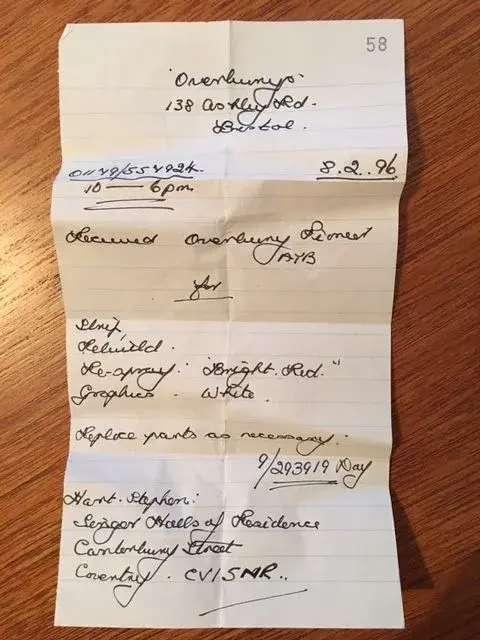 58
"Overburys"
138 Ashley Rd.
Bristol.
8.2.96
10 — 6pm
Received Overbury Pioneer
ATB
for
Strip,
Rebuild.
Re-spray. "Bright Red."
Graphics. White.
Replace parts as necessary.
9/293919 Day
Hart. Stephen.
Singer Halls of Residence
Canterbury Street
Coventry. CV1 5NR..